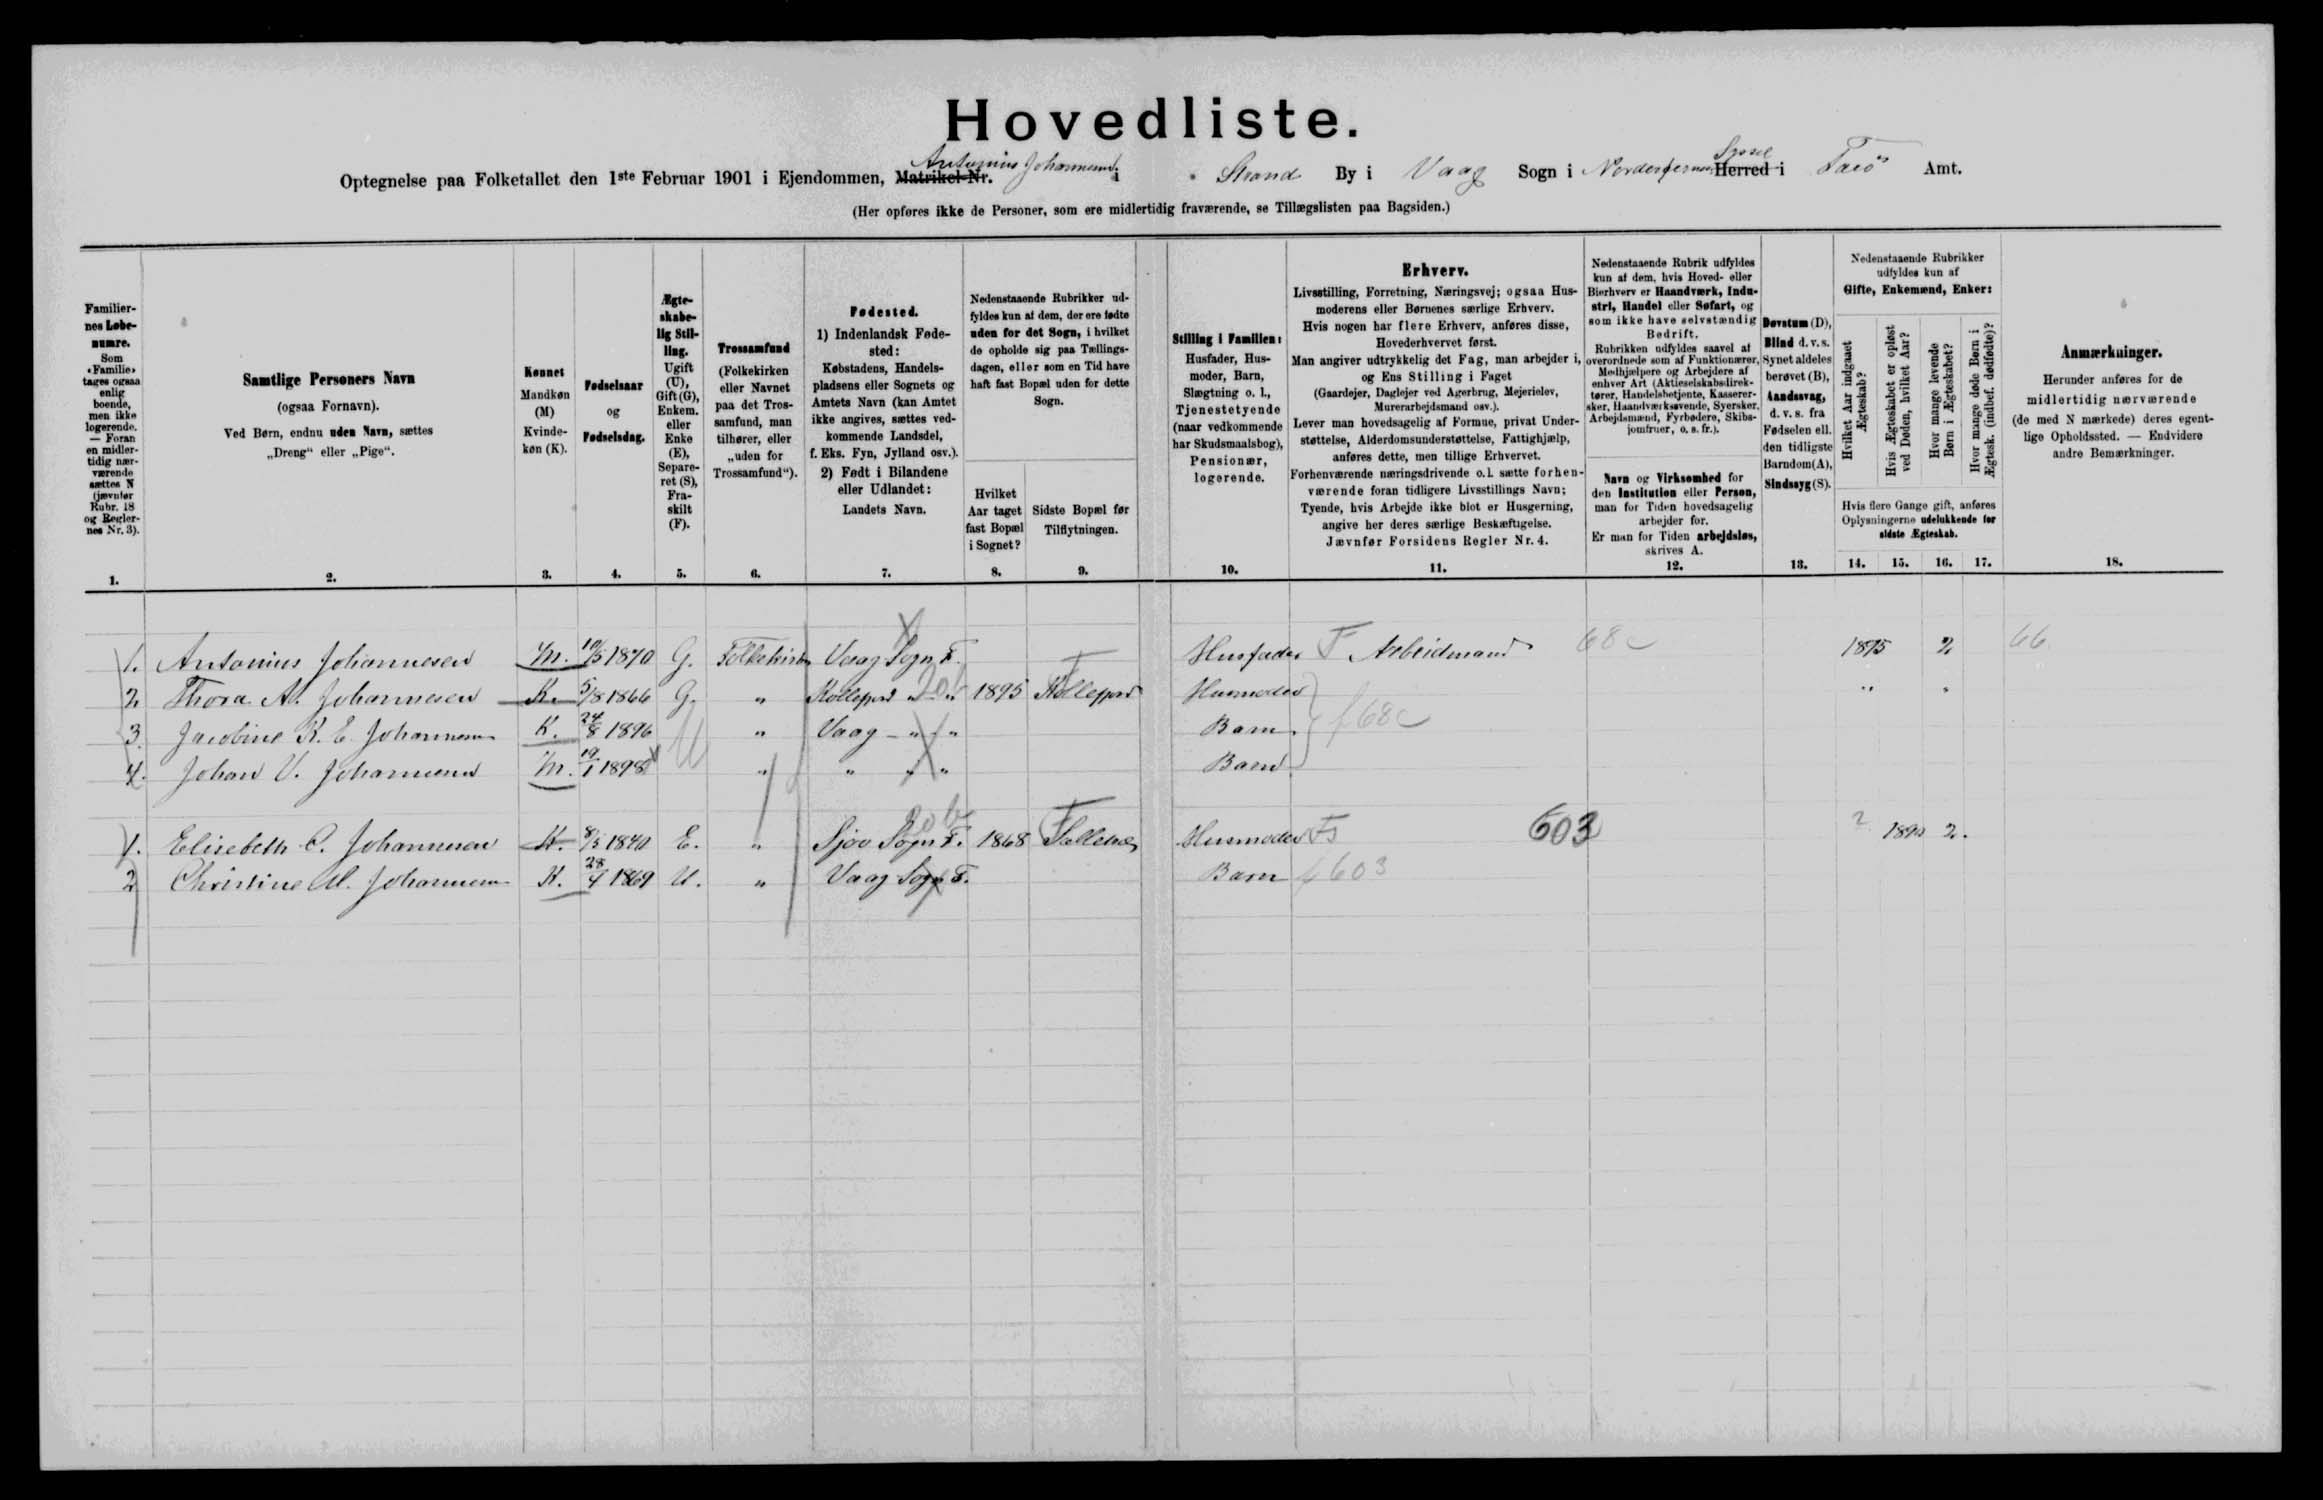 Hovedliste.
Optegnelse paa Folketallet den 1ste Februar 1901 i Ejendommen, Matrikel-Nr. Antonius Johannesens i Strand By i Vaag Sogn i Herred Syssel i Færö Amt.
(Her opføres ikke de Personer, som ere midlertidig fraværende, se Tillægslisten paa Bagsiden.)
Familiernes Løbenumre.
Som «Familie» tages ogsaa enlig boende, men ikke logerende. — Foran en midlertidig nærværende sættes N (jævnfør Rubr. 18 og Reglernes Nr. 3).
1.
Samtlige Personers Navn
(ogsaa Fornavn).
Ved Børn, endnu uden Navn, sættes
„Dreng“ eller „Pige“.
2.
Kønnet
Mandkøn (M)
Kvindekøn (K).
3.
Fødselsaar
og
Fødselsdag.
4.
Ægteskabelig Stilling.
Ugift (U), Gift (G), Enkem. eller Enke (E), Separeret (S), Fraskilt (F).
5.
Trossamfund
(Folkekirken eller Navnet paa det Trossamfund, man tilhører, eller „uden for Trossamfund“).
6.
Fødested.
1) Indenlandsk Fødested:
Købstadens, Handelspladsens eller Sognets og Amtets Navn (kan Amtet ikke angives, sættes vedkommende Landsdel, f. Eks. Fyn, Jylland osv.).
2) Født i Bilandene eller Udlandet:
Landets Navn.
7.
Nedenstaaende Rubrikker udfyldes kun af dem, der ere fødte uden for det Sogn, i hvilket de opholde sig paa Tællingsdagen, eller som en Tid have haft fast Bopæl uden for dette Sogn.
Hvilket Aar taget fast Bopæl i Sognet?
8.
Sidste Bopæl før Tilflytningen.
9.
Stilling i Familien:
Husfader, Husmoder, Barn, Slægtning o. l., Tjenestetyende (naar vedkommende har Skudsmaalsbog), Pensionær, logerende.
10.
Erhverv.
Livsstilling, Forretning, Næringsvej; ogsaa Husmoderens eller Børnenes særlige Erhverv.
Hvis nogen har flere Erhverv, anføres disse, Hovederhvervet først.
Man angiver udtrykkelig det Fag, man arbejder i, og Ens Stilling i Faget
(Gaardejer, Daglejer ved Agerbrug, Mejerielev, Murerarbejdsmand osv.).
Lever man hovedsagelig af Formue, privat Understøttelse, Alderdomsunderstøttelse, Fattighjælp, anføres dette, men tillige Erhvervet.
Forhenværende næringsdrivende o.l. sætte forhenværende foran tidligere Livsstillings Navn;
Tyende, hvis Arbejde ikke blot er Husgerning, angive her deres særlige Beskæftigelse.
Jævnfør Forsidens Regler Nr. 4.
11.
Nedenstaaende Rubrik udfyldes kun af dem, hvis Hoved- eller Bierhverv er Haandværk, Industri, Handel eller Søfart, og som ikke have selvstændig Bedrift.
Rubrikken udfyldes saavel af overordnede som af Funktionærer, Medhjælpere og Arbejdere af enhver Art (Aktieselskabsdirektører, Handelsbetjente, Kasserersker, Haandværkssvende, Syersker, Arbejdsmænd, Fyrbødere, Skibsjomfruer, o. s. fr.).
Navn og Virksomhed for den Institution eller Person, man for Tiden hovedsagelig arbejder for.
Er man for Tiden arbejdsløs, skrives A.
12.
Døvstum (D),
Blind d. v. s. Synet aldeles berøvet (B),
Aandssvag, d. v. s. fra Fødselen ell. den tidligste Barndom (A),
Sindssyg (S).
13.
Nedenstaaende Rubrikker udfyldes kun af
Gifte, Enkemænd, Enker:
Hvilket Aar indgaaet Ægteskab?
Hvis Ægteskabet er opløst ved Døden, hvilket Aar?
Hvor mange levende Børn i Ægteskabet?
Hvor mange døde Børn i Ægtesk. (indbef. dødfødte)?
Hvis flere Gange gift, anføres Oplysningerne udelukkende for sidste Ægteskab.
14. 15. 16. 17.
Anmærkninger.
Herunder anføres for de midlertidig nærværende (de med N mærkede) deres egentlige Opholdssted. — Endvidere andre Bemærkninger.
18.
1. Antonius Johannesen M. 10/5 1870 G. Folkekirken Vaag Sogn F. Husfader F Arbeidmand 68c 1895 2 66
2. Thora A. Johannesen K. 5/8 1866 G. " Kollefjord " " 20b 1895 Kollefjord Husmoder " "
3. Jacobine K. E. Johannesen K. 24/8 1896 U " Vaag " " Barn f 68c
4. Johan V. Johannesen M. 19/1 1898 " " " " Barn
1. Elisebeth C. Johannesen K. 8/5 1840 E. " Sjov Sogn F. 20b 1868 Husmoder Fs 603 ? 1890 2.
2 Christine M. Johannesen K. 28/4 1869 U. " Vaag Sogn F. Barn f 603